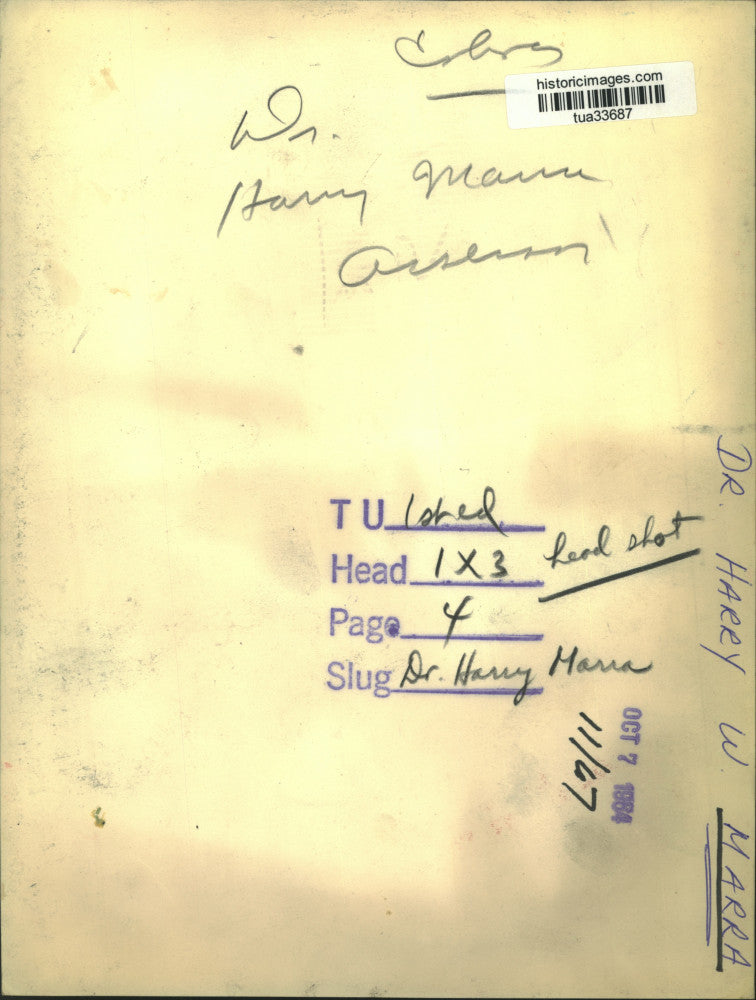 Cohoes
historicimages.com
tua33687
Dr.
Harry Marra
Assessor
TU 1st ed
Head 1 X 3 head shot
Page 4
Slug Dr. Harry Marra
OCT 7 1964
11/67
DR. HARRY W. MARRA